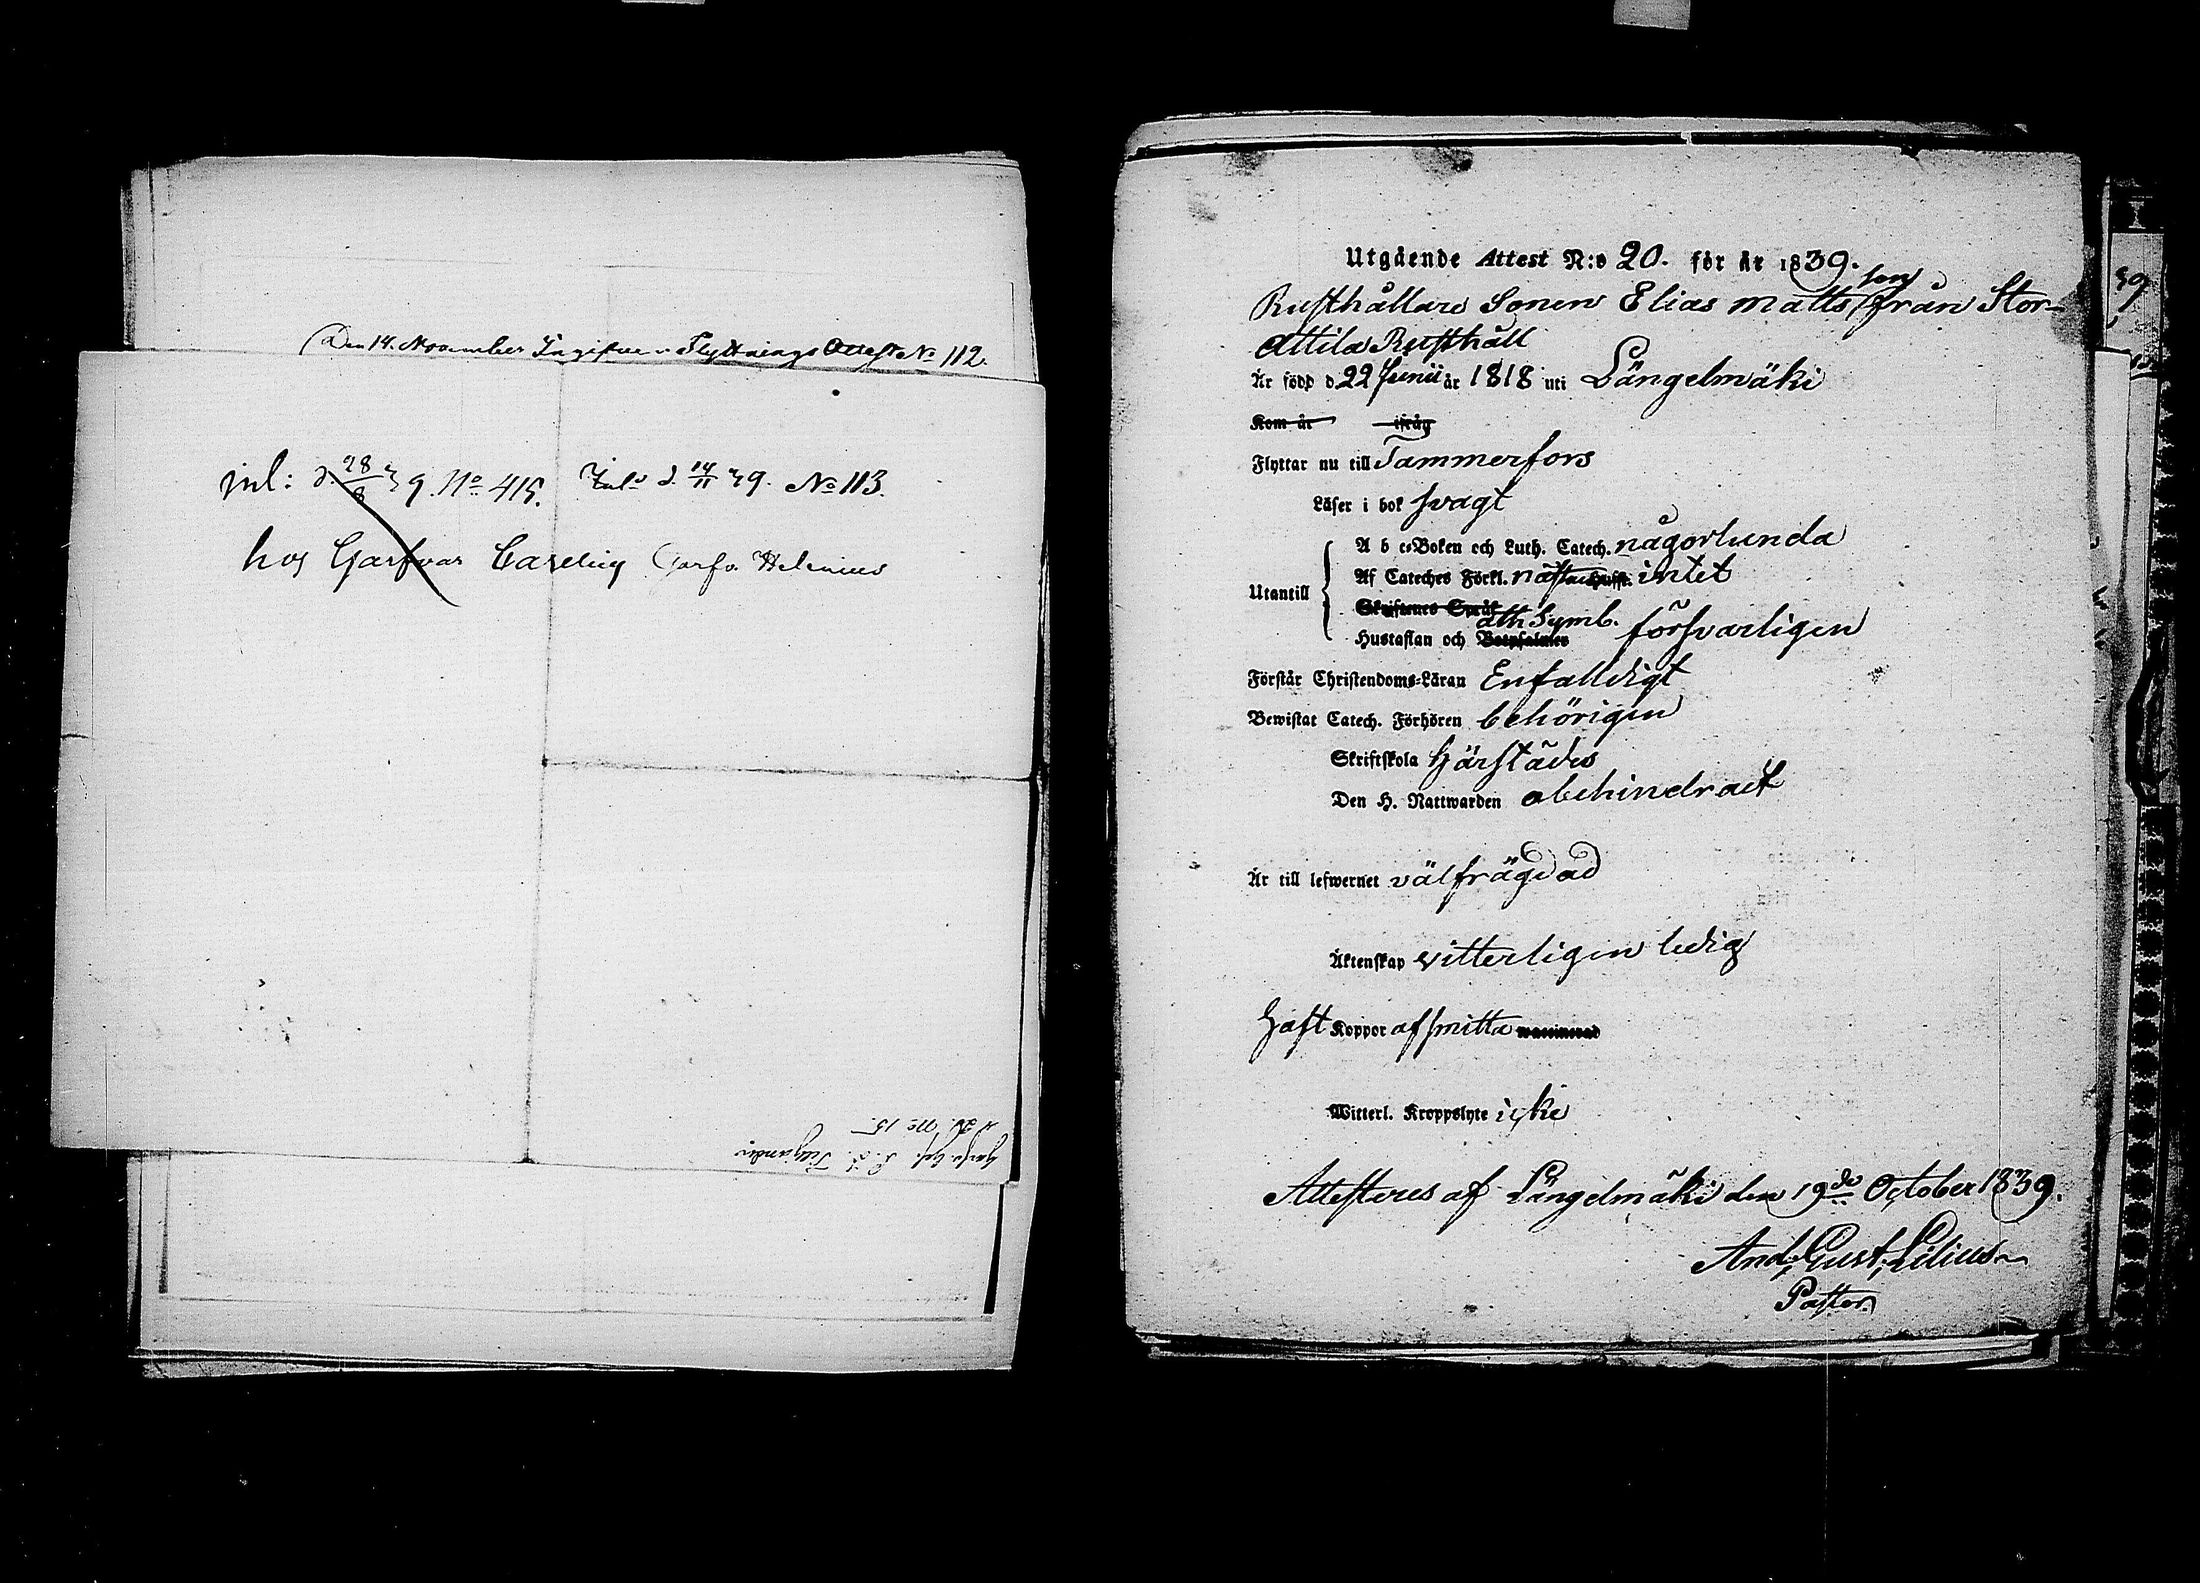 Den 14. November Ingifven Flyttnings Attest No 112.
inl: d. 28/8 39. No 415. Inl. d. 14/11 39. No 113.
hos Garfvar Caselius Garfv. Helenius
Utgående Attest N:o 20. för år 1839.
Rusthållare Sonen Elias Mattsson från Stor-
Attila Rusthåll
Är född d. 22 Junii år 1818 uti Längelmäki
Kom år ifråg
Flyttar nu till Tammerfors
Läser i bok svagt
A b c-Boken och Luth. Catech. någorlunda
Utantill
Af Cateches Förkl. intet
Skriftenes Språk
Ath Symb.
Hustaflan och Botpsalmer försvarligen
Förstår Christendoms-Läran Enfalldigt
Bewistat Catech. Förhören behörigen
Skriftskola Härstädes
Den H. Nattwarden obehindradt
Är till lefwernet välfrägdad
Äktenskap vitterligen ledig
Haft Koppor af smitta waccinerad
Witterl. Kroppslyte icke
Attesteres af Längelmäki den 19de October 1839.
And. Gust. Lilius
Pastor.
39